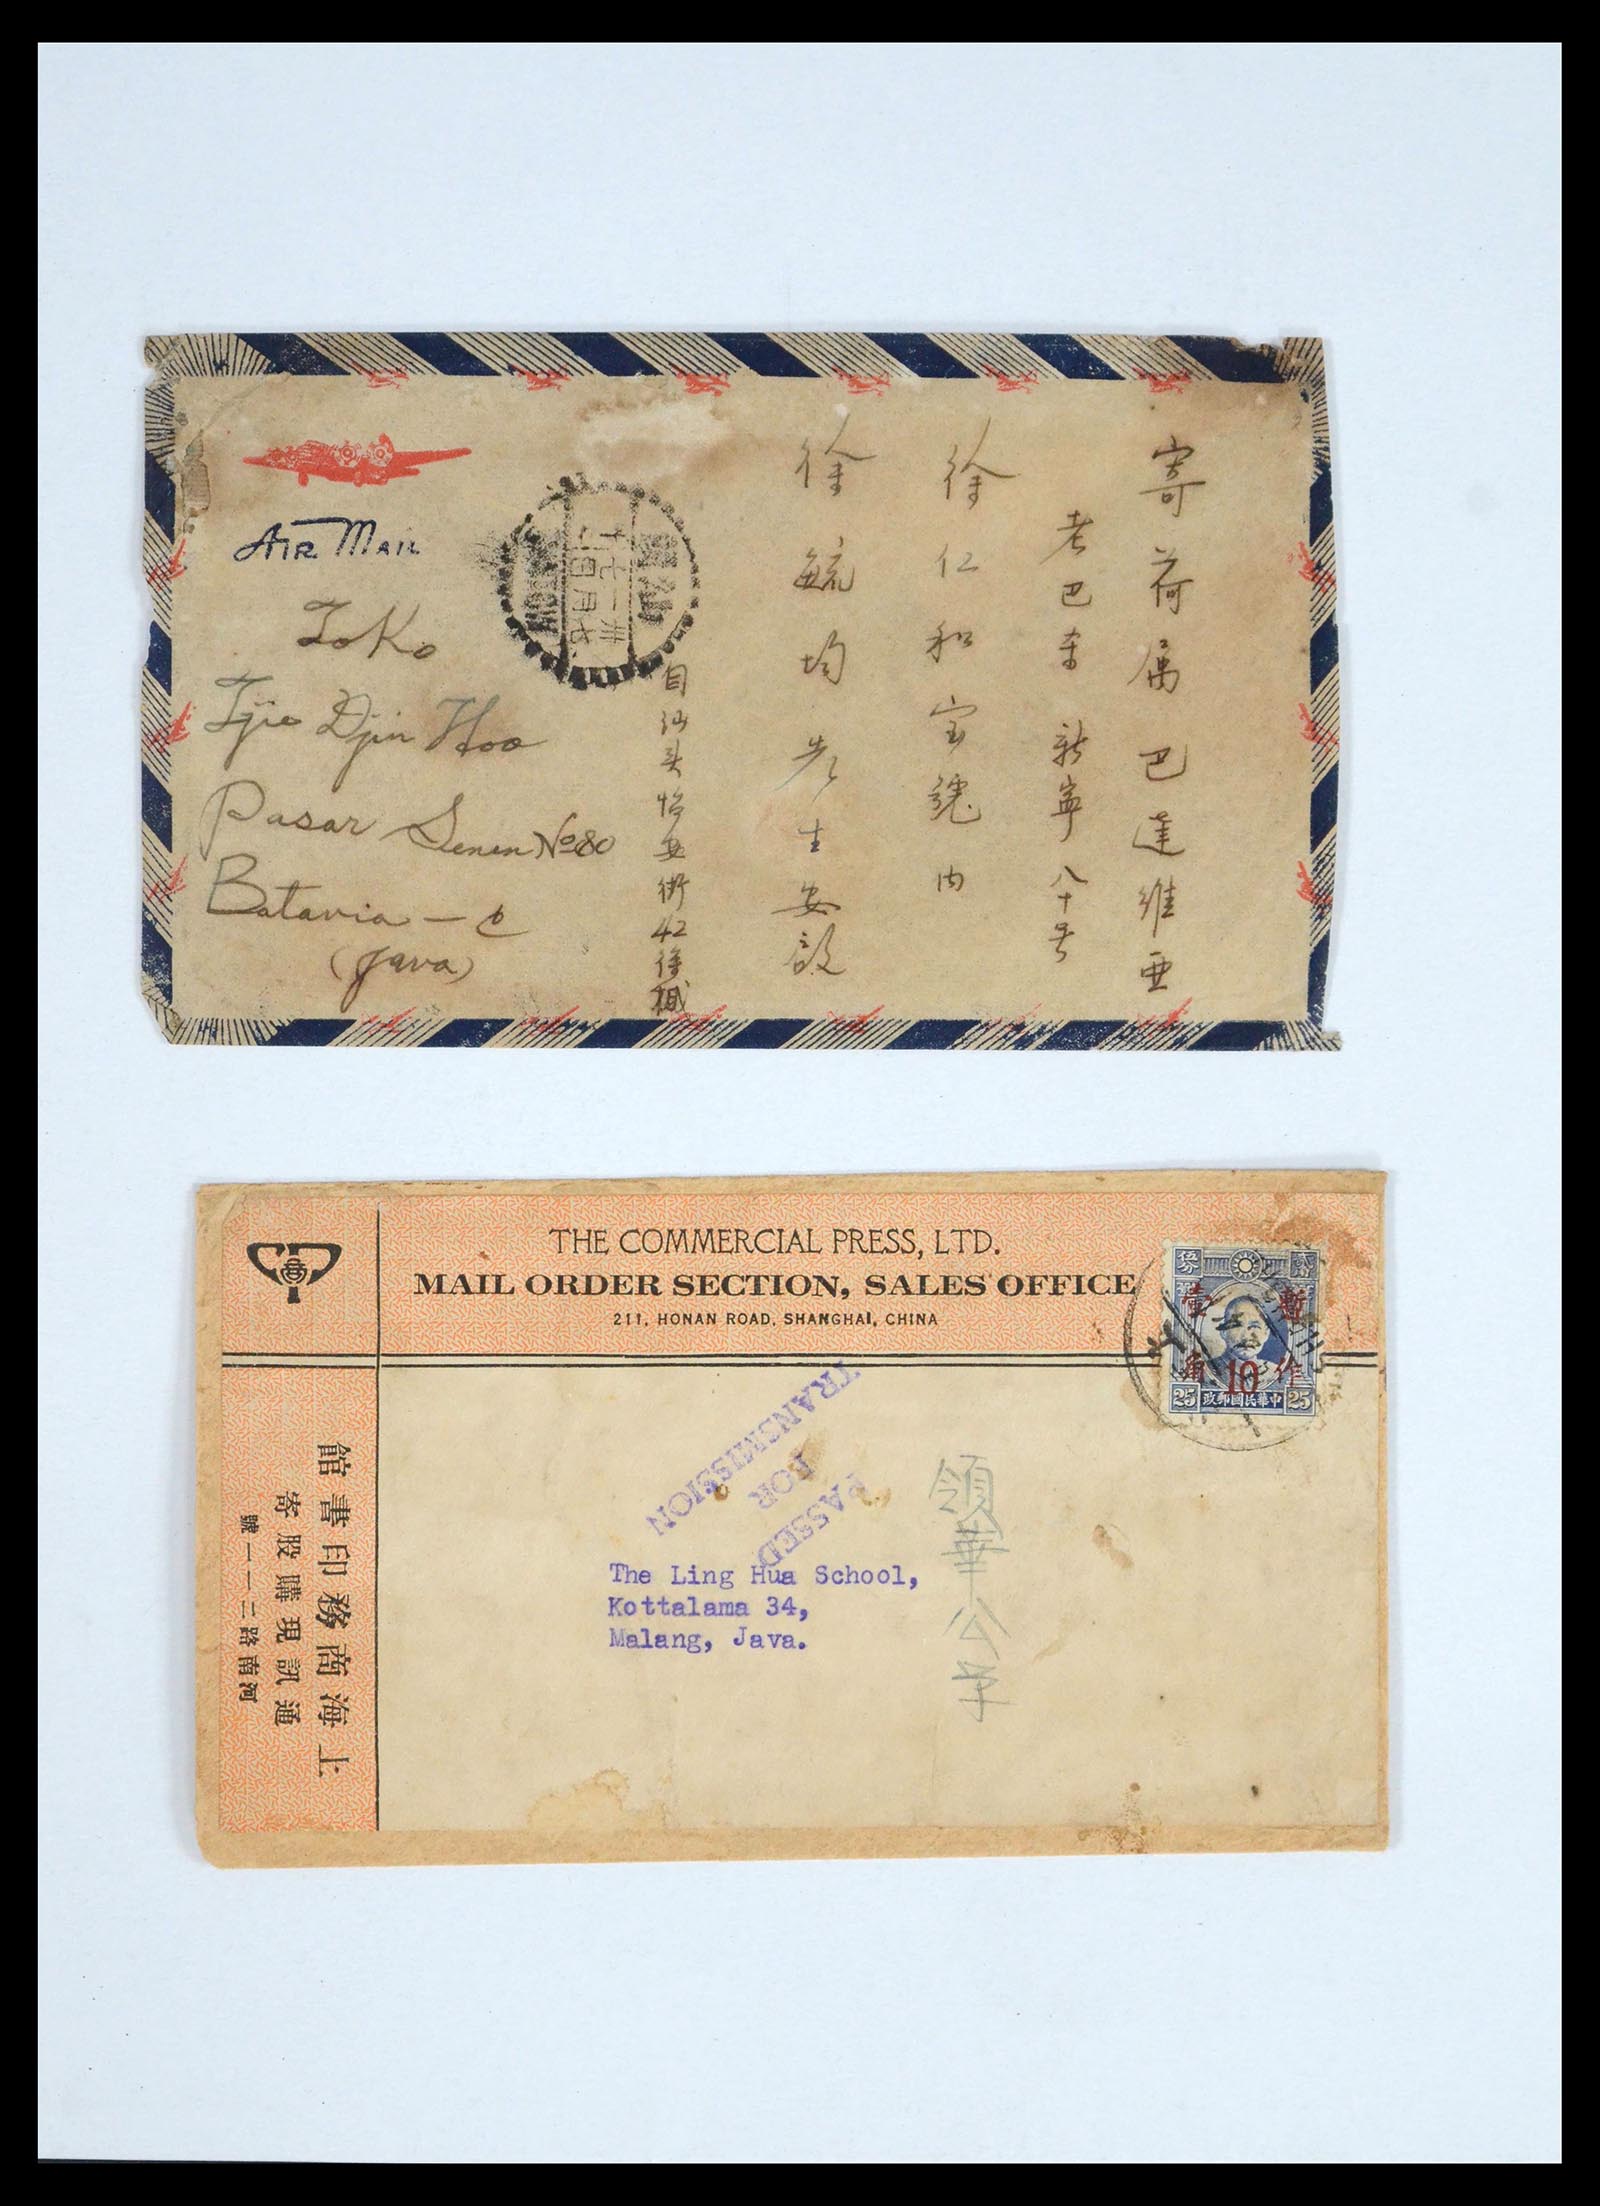 AIR MAIL
Toko
Tjie Djin Hoo
Pasar Senen No 80
Batavia - C
(Java)
寄荷属巴達維亜
老巴刹新寧八十号
徐仁和宝號内
徐毓均先生安啟
自汕头怡安街42徐椷
THE COMMERCIAL PRESS, LTD.
MAIL ORDER SECTION, SALES OFFICE
211, HONAN ROAD, SHANGHAI, CHINA
上海商務印書館
通訊現購股寄
河南路二一一號
暫作
壹角
10
25
中華民國郵政
25
PASSED
FOR
TRANSMISSION
The Ling Hua School,
Kottalama 34,
Malang, Java.
領華公